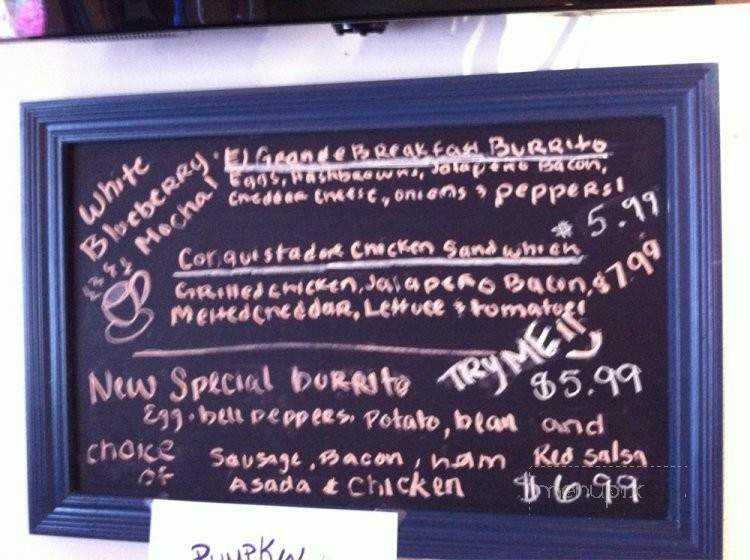 White
Blueberry
Mocha!
• El Grande Breakfast Burrito
Eggs, Hashbrowns, Jalapeño Bacon,
cheddar cheese, onions & peppers!
$ 5.99
Conquistador Chicken Sandwhich
Grilled chicken, Jalapeño Bacon, $7.99
Melted cheddar, Lettuce & tomatoes
TRY ME!!
New Special burrito $5.99
Egg, bell peppers, potato, bean and
choice of
Sausage, Bacon, ham Red Salsa
Asada & Chicken $6.99
menupix
PUMPKIN